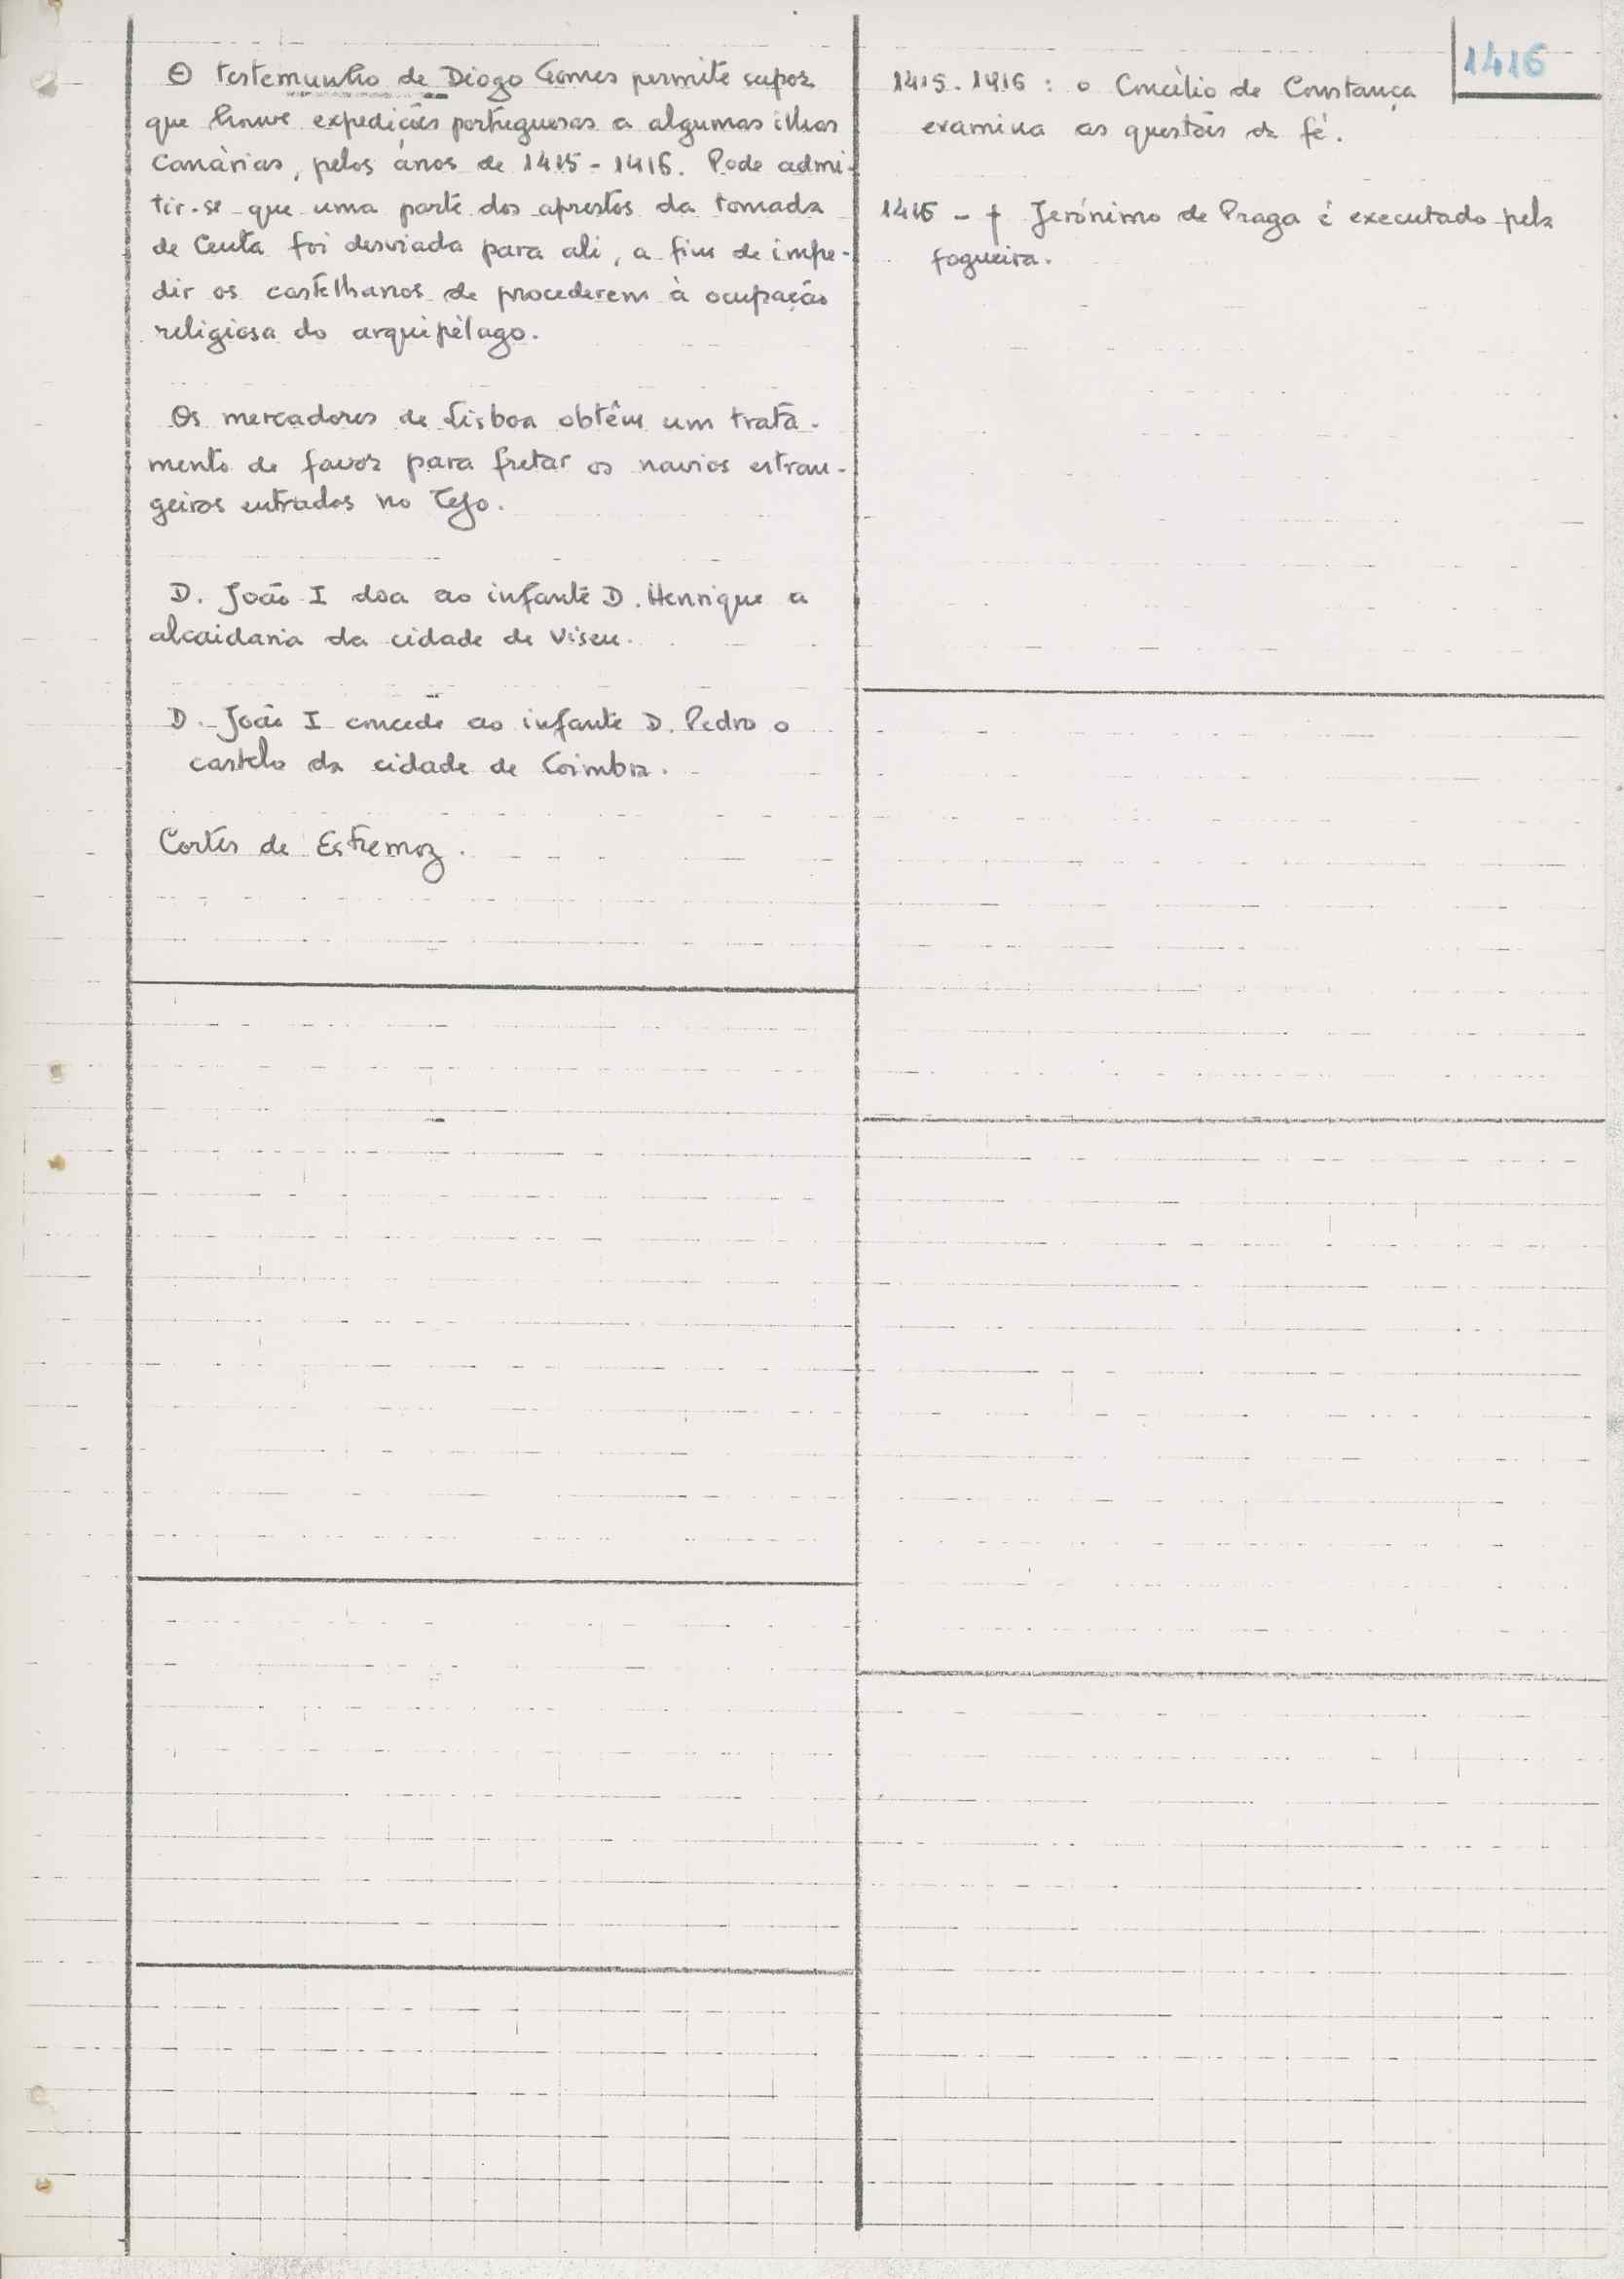 O testemunho de Diogo Gomes permite supor
que houve expedições portuguesas a algumas ilhas
Canárias, pelos anos de 1415-1416. Pode admi-
tir-se que uma parte dos aprestos da tomada
de Ceuta foi desviada para ali, a fim de impe-
dir os castelhanos de procederem à ocupação
religiosa do arquipélago.
Os mercadores de Lisboa obtêm um trata-
mento de favor para fretar os navios estran-
geiros entrados no Tejo.
D. João I doa ao infante D. Henrique a
alcaidaria da cidade de Viseu.
D. João I concede ao infante D. Pedro o
castelo da cidade de Coimbra.
Cortes de Estremoz.
1416
1415-1416: o Concílio de Constança
examina as questões da fé.
1416 - † Jerónimo de Praga é executado pela
fogueira.